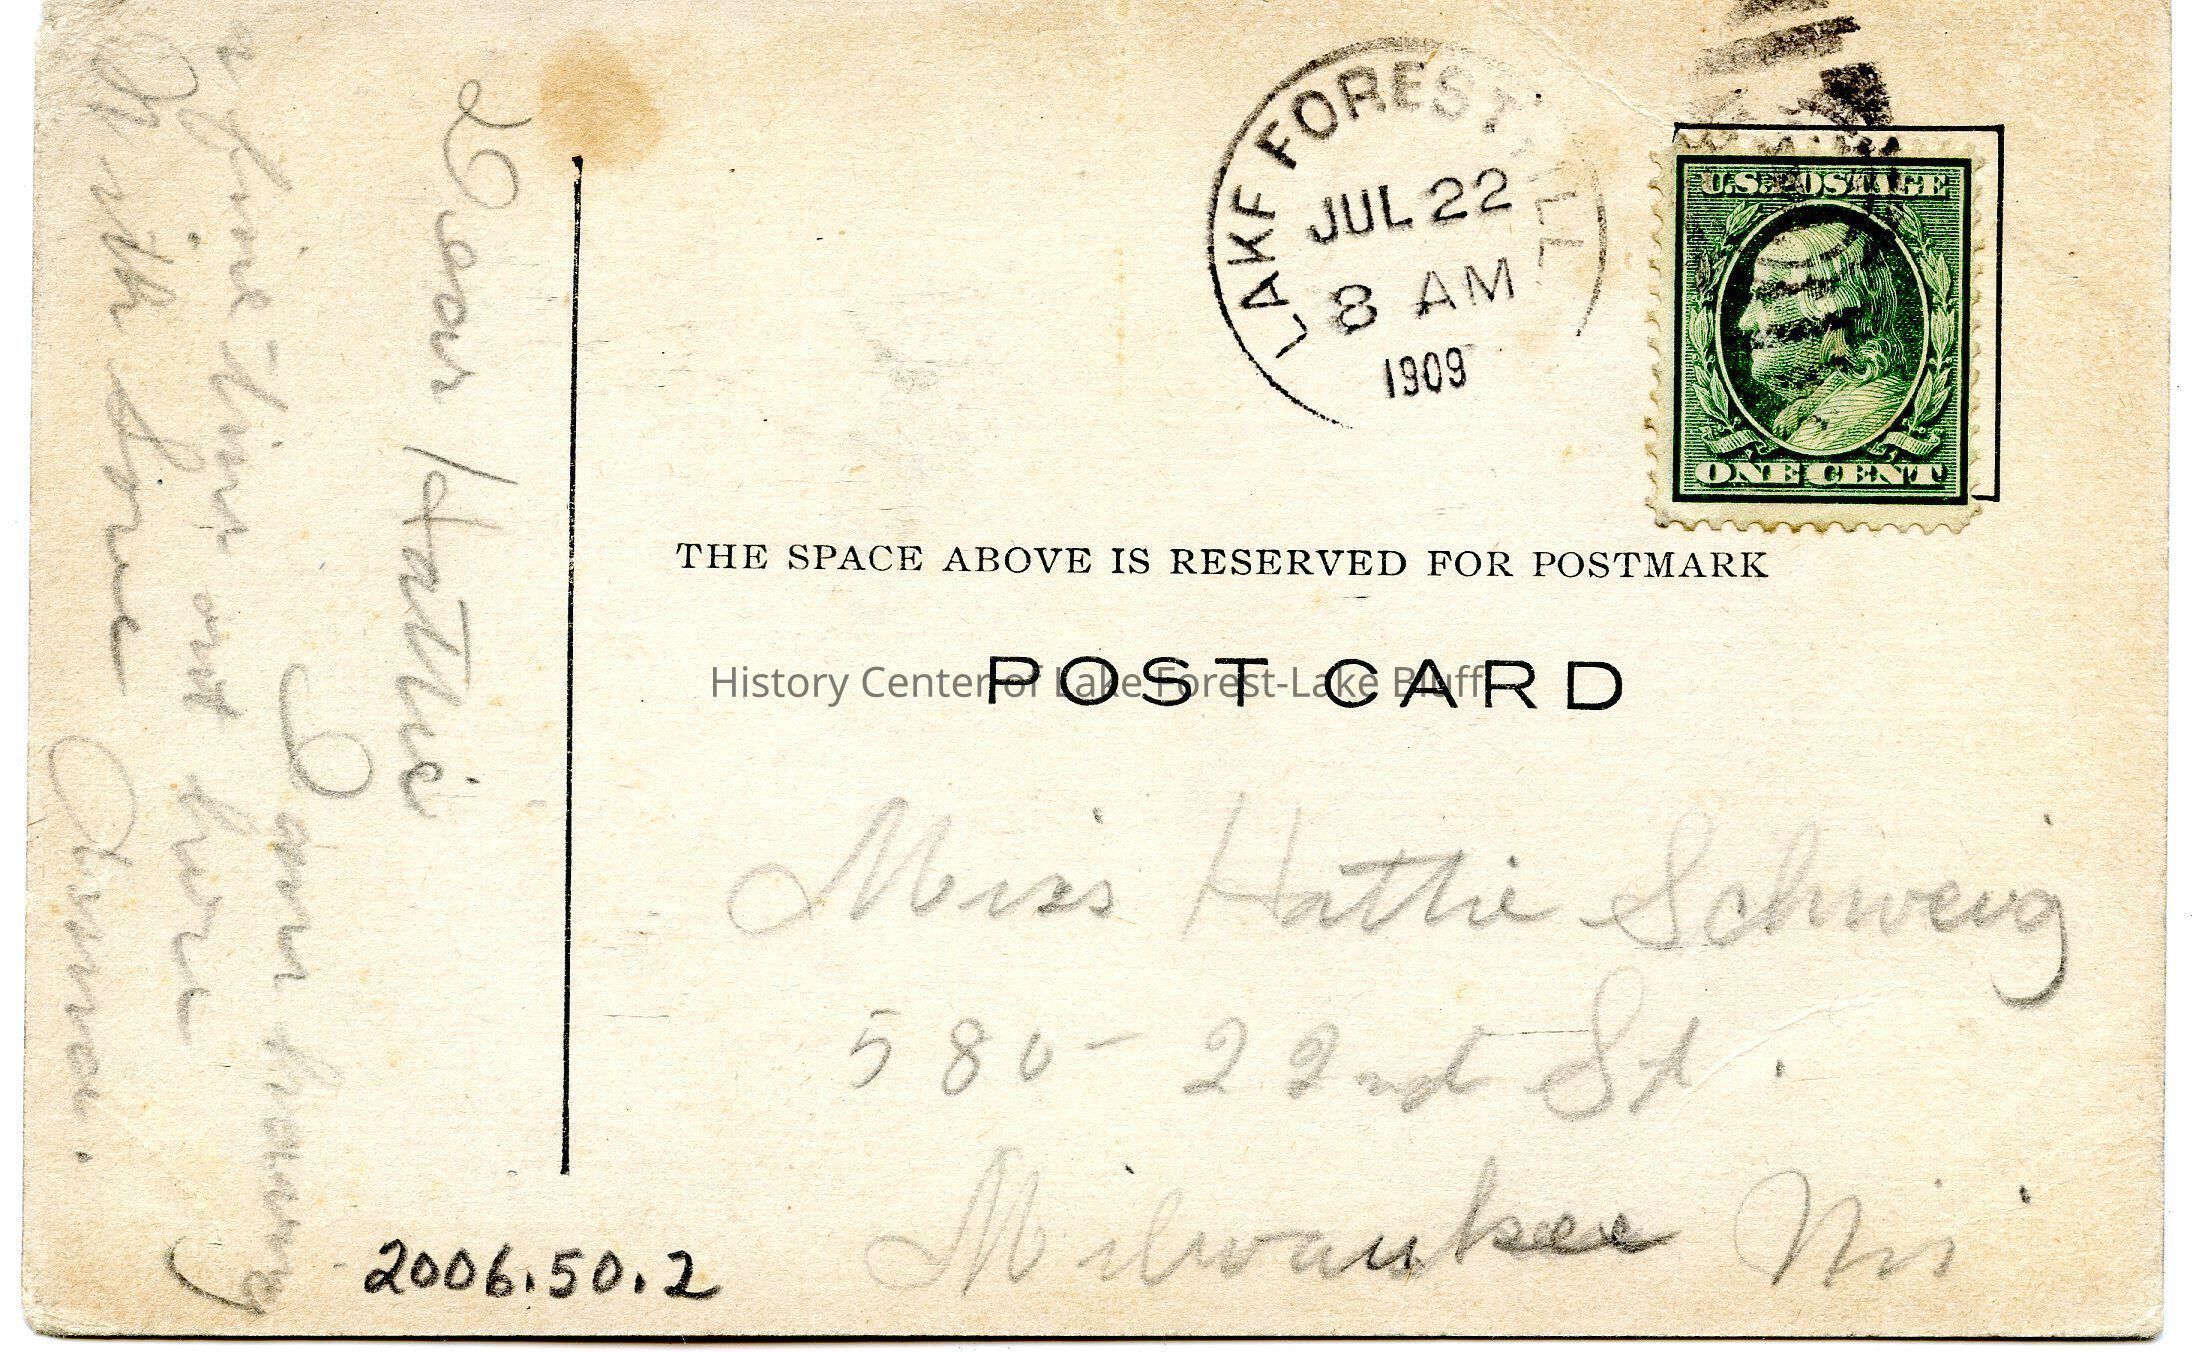 Dear Hattie
I am having
a fine time out here
With Love
Emma.
LAKE FOREST, ILL.
JUL 22
8 AM
1909
U.S. POSTAGE
ONE CENT
THE SPACE ABOVE IS RESERVED FOR POSTMARK
POST CARD
History Center of Lake Forest-Lake Bluff
Miss Hattie Schweig
580-22nd St.
Milwaukee Wis
2006.50.2